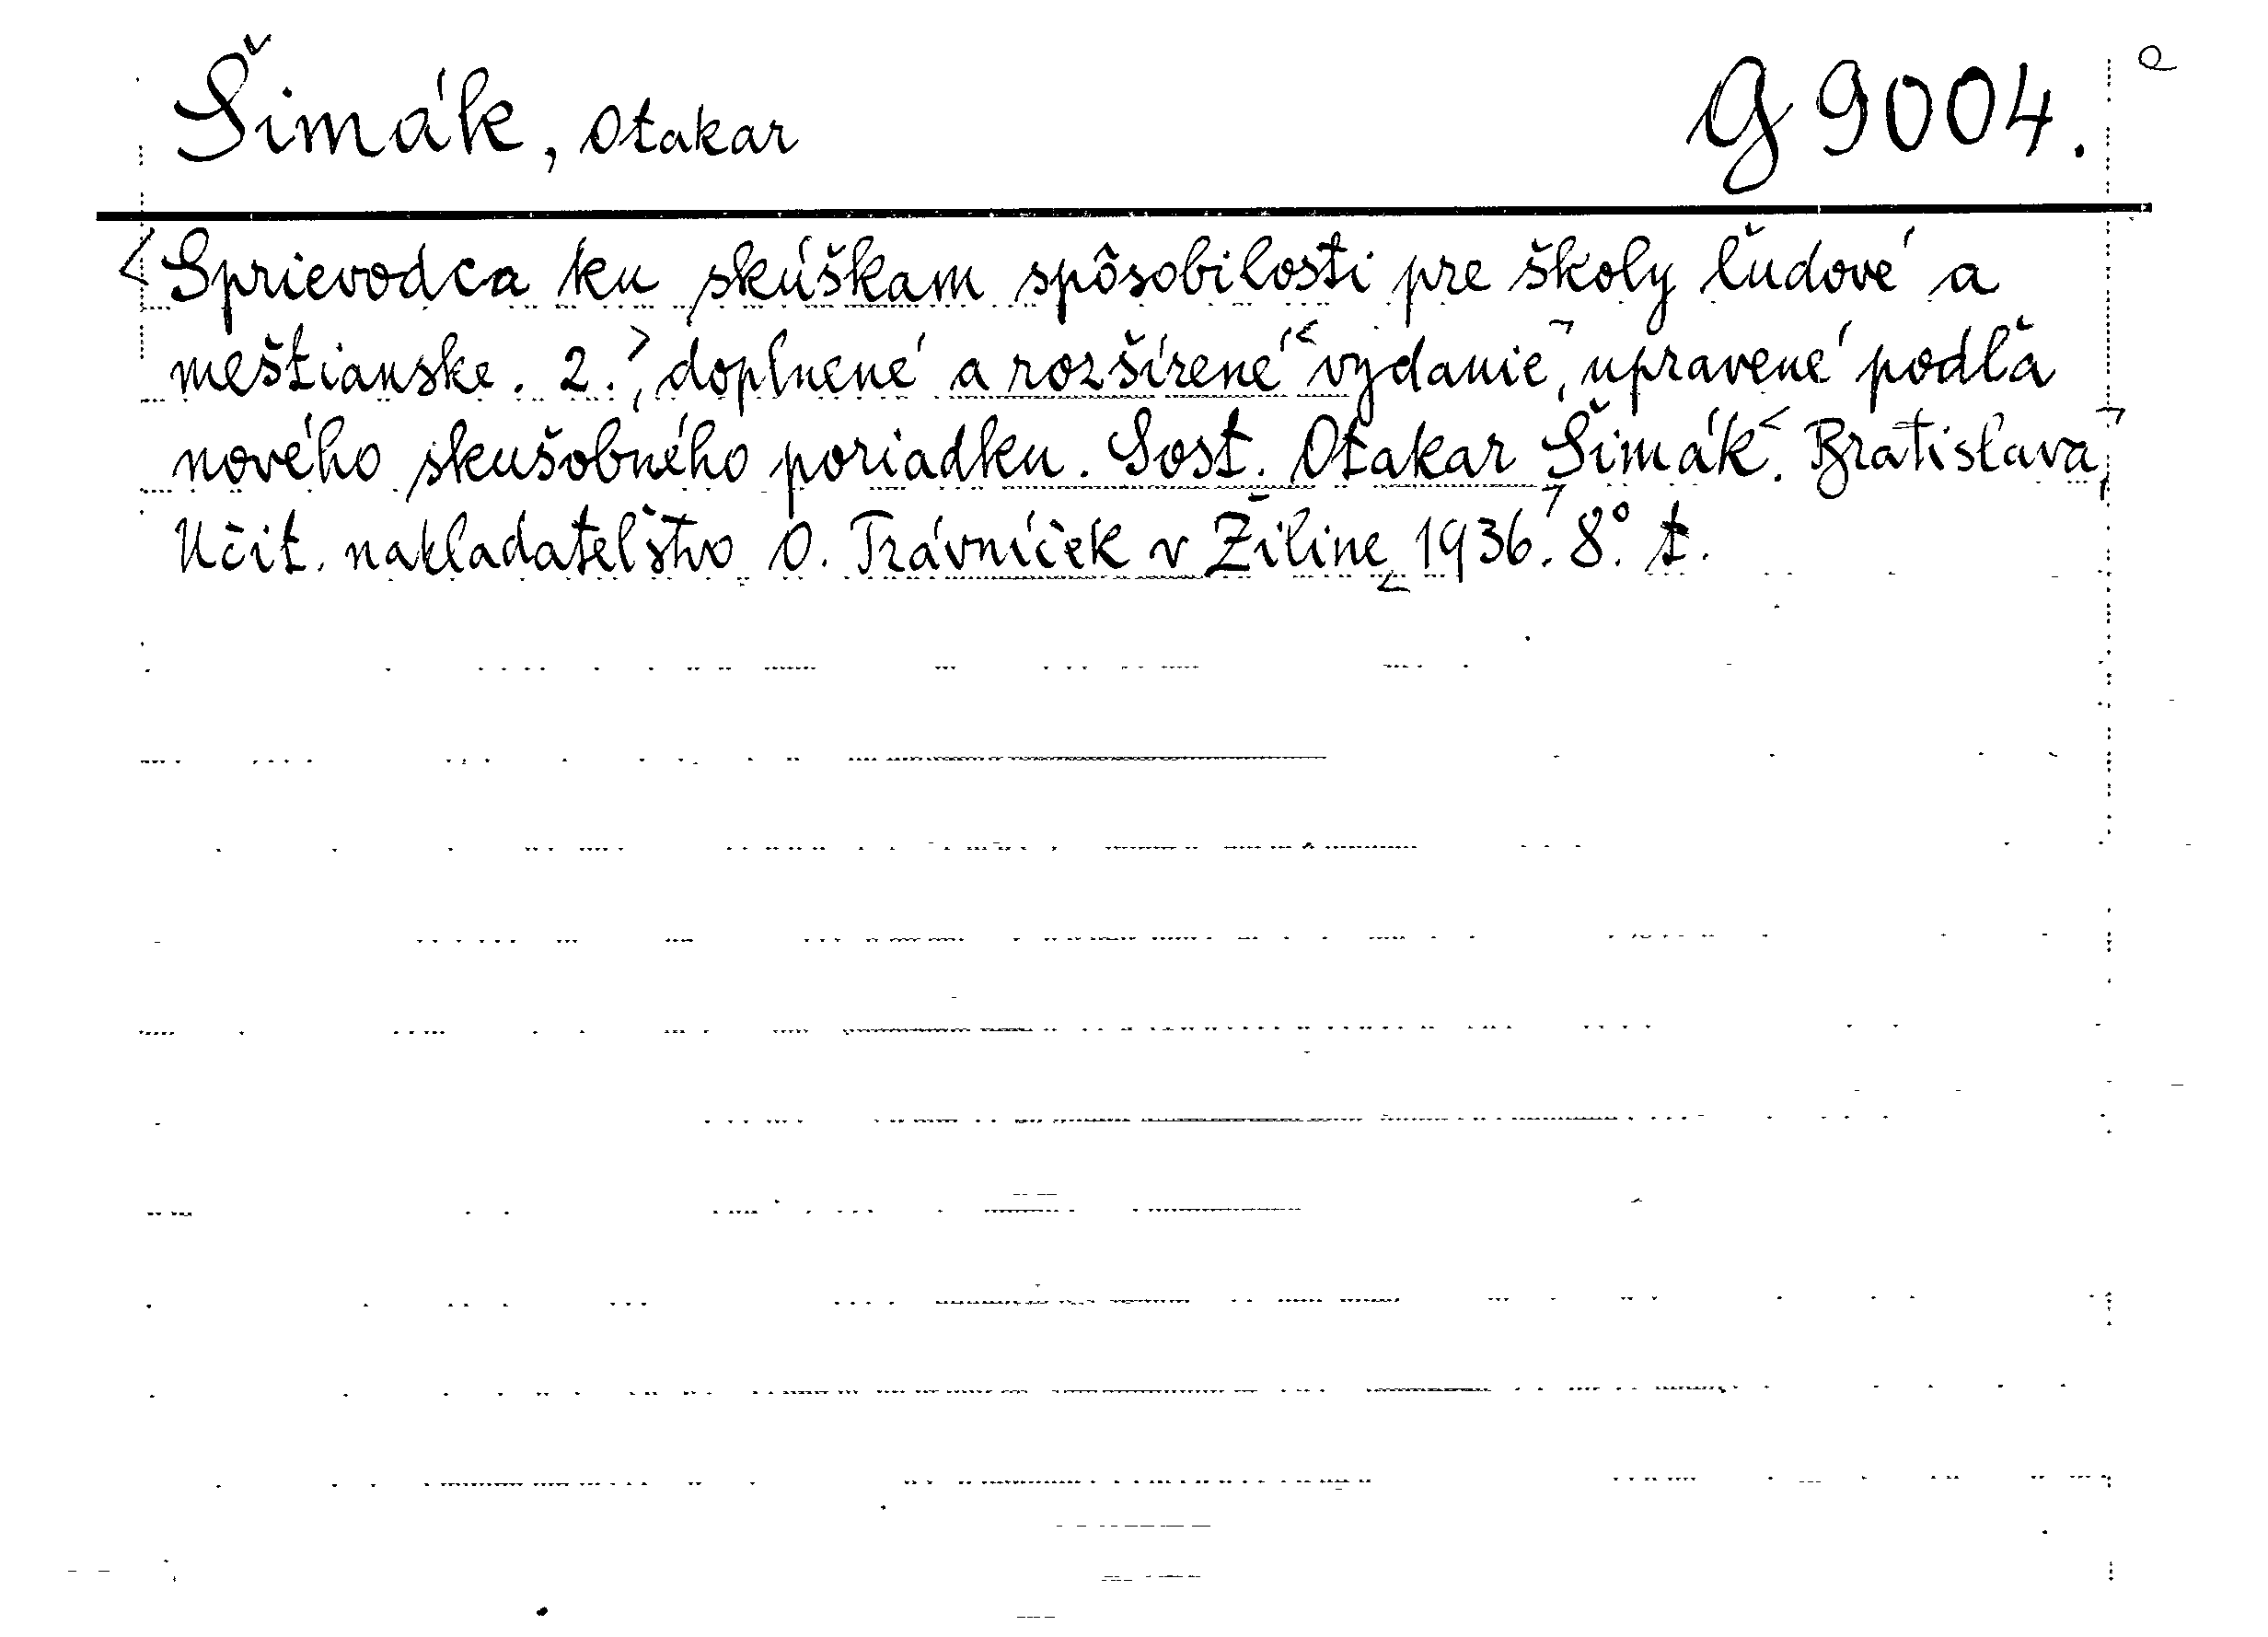 Šimák, Otakar G 9004.
Sprievodca ku skúškam spôsobilosti pre školy ľudové a
meštianske. 2., doplnené a rozšírené vydanie, upravené podľa
nového skušobného poriadku. Sost. Otakar Šimák. Bratislava,
Učit. nakladateľstvo O. Trávníček v Žiline 1936. 8°. t.